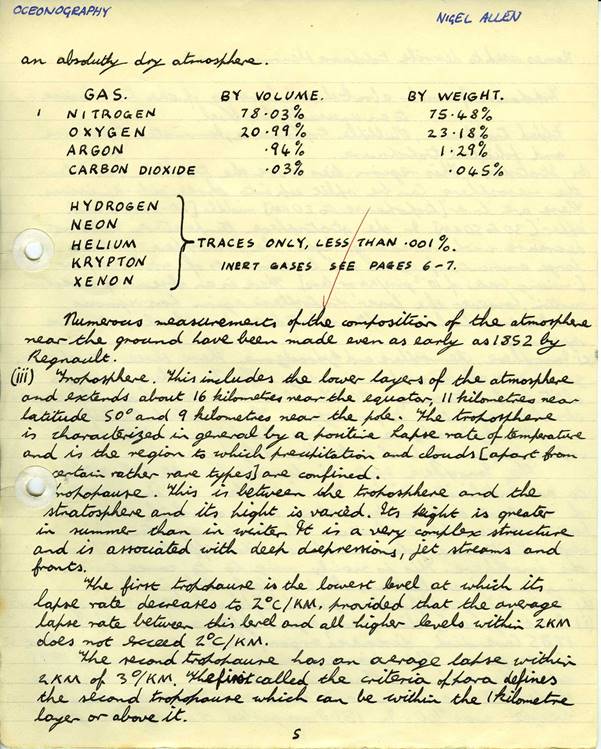 OCEONOGRAPHY
NIGEL ALLEN
an absolutly dry atmosphere.
GAS. BY VOLUME. BY WEIGHT.
1 NITROGEN 78.03% 75.48%
OXYGEN 20.99% 23.18%
ARGON .94% 1.29%
CARBON DIOXIDE .03% .045%
HYDROGEN
NEON
HELIUM TRACES ONLY, LESS THAN .001%.
KRYPTON INERT GASES SEE PAGES 6-7.
XENON
Numerous measurements of the composition of the atmosphere
near the ground have been made even as early as 1852 by
Regnault.
(iii) Troposphere. This includes the lower layers of the atmosphere
and extends about 16 kilometres near the equator, 11 kilometres near
latitude 50° and 9 kilometres near the pole. The troposphere
is characterized in general by a positive lapse rate of temperature
and is the region to which precipitation and clouds [apart from
certain rather rare types] are confined.
Tropopause. This is between the troposphere and the
stratosphere and its hight is varied. Its hight is greater
in summer than in winter. It is a very complex structure
and is associated with deep depressions, jet streams and
fronts.
The first tropopause is the lowest level at which its
lapse rate decreases to 2°C/KM, provided that the average
lapse rate between this level and all higher levels within 2KM
does not exceed 2°C/KM.
The second tropopause has an average lapse within
2KM of 3°/KM. The first called the criteria of defines
the second tropopause which can be within the 1 kilometre
layer or above it.
5